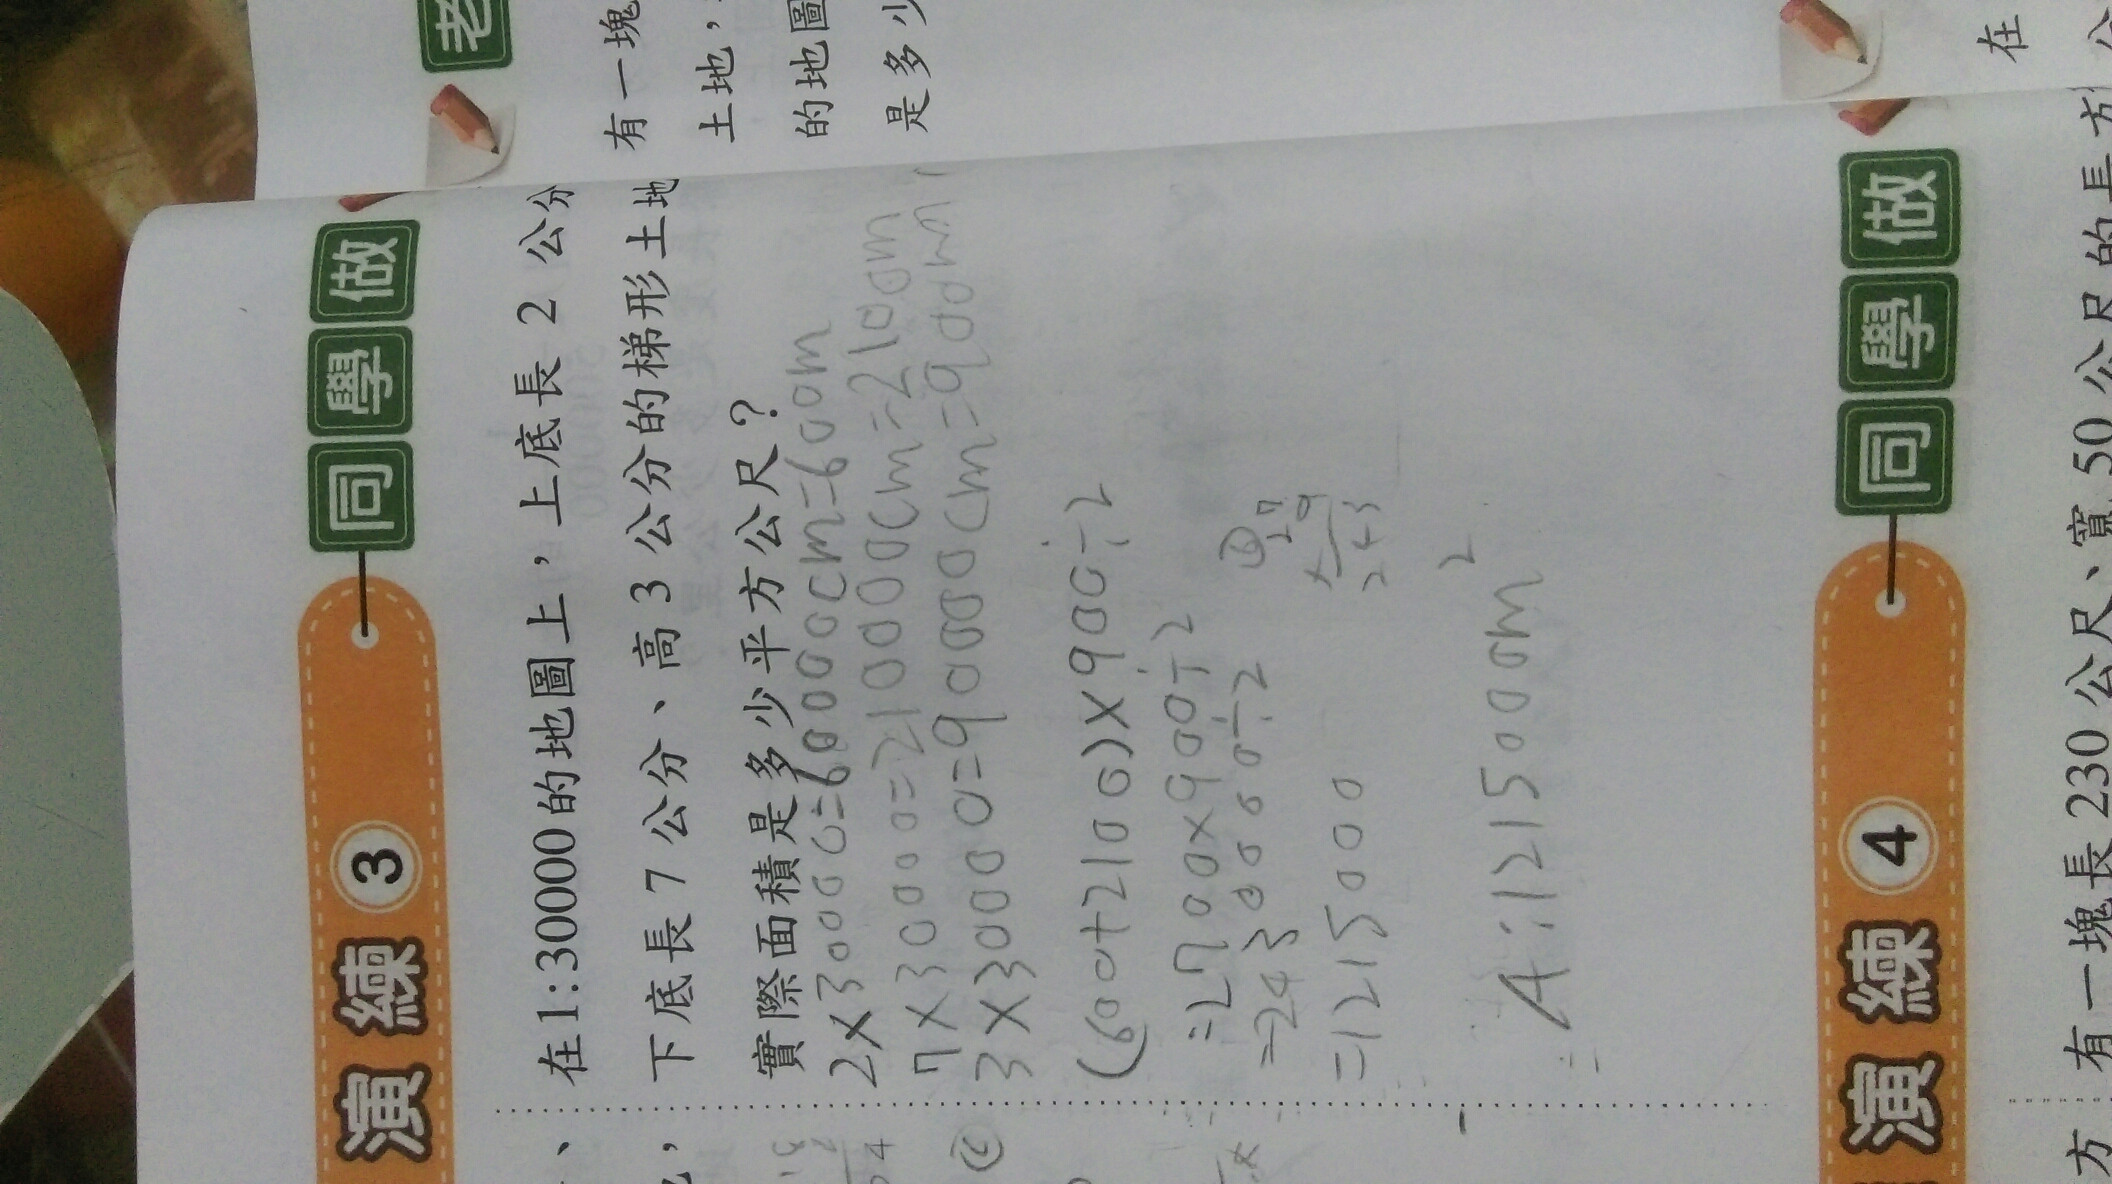 老
有一塊
土地，
的地圖
是多少
演練 3 同學做
在1:30000的地圖上，上底長2公分
下底長7公分、高3公分的梯形土地
實際面積是多少平方公尺？
2×30000=60000cm=600m
7×30000=210000cm=2100m
3×30000=90000cm=900m
(600+2100)×900÷2
=2700×900÷2
=2430000÷2
=1215000
27
×9
243
A:1215000m²
演練 4 同學做
在
有一塊長230公尺、寬50公尺的長方
方